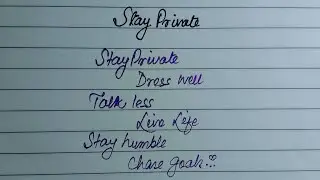 Stay Private
Stay Private
Dress well
Talk less
Live Life
Stay humble
Chase goals...